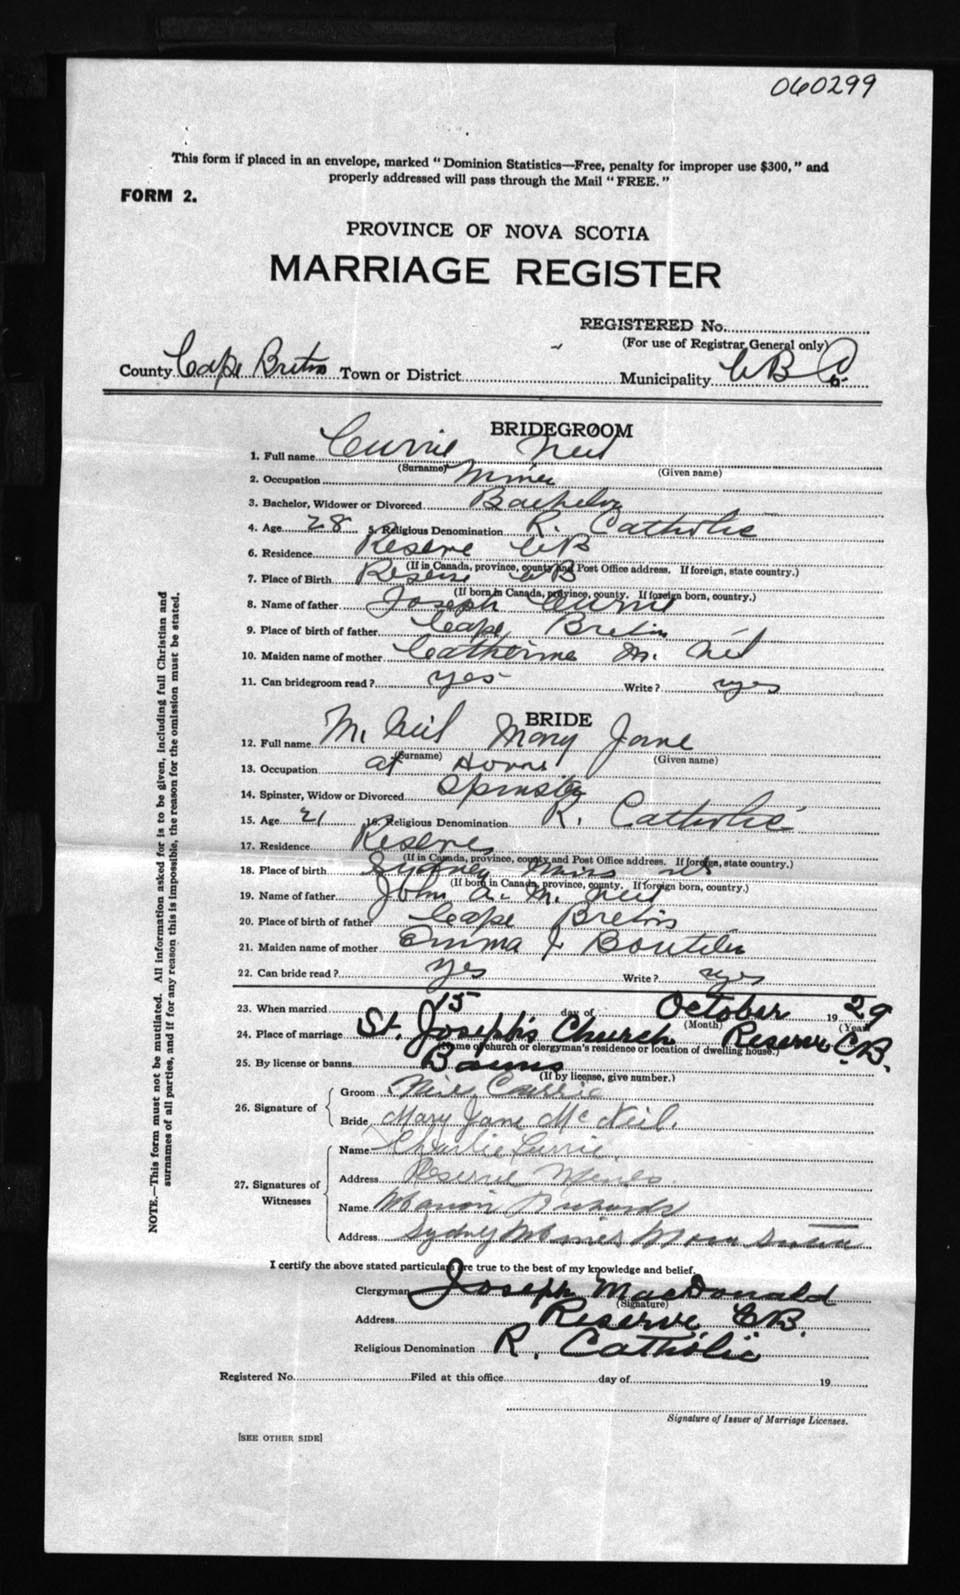 060299
This form if placed in an envelope, marked "Dominion Statistics—Free, penalty for improper use $300," and
properly addressed will pass through the Mail "FREE."
FORM 2.
PROVINCE OF NOVA SCOTIA
MARRIAGE REGISTER
REGISTERED No.
(For use of Registrar General only)
County Cape Breton Town or District Municipality C B Co.
BRIDEGROOM
1. Full name Currie Neil
(Surname) (Given name)
2. Occupation Miner
3. Bachelor, Widower or Divorced Bachelor
4. Age 28 5. Religious Denomination R. Catholic
6. Residence Reserve CB
(If in Canada, province, county and Post Office address. If foreign, state country.)
7. Place of Birth Reserve CB
(If born in Canada, province, county. If foreign born, country.)
8. Name of father Joseph Currie
9. Place of birth of father Cape Breton
10. Maiden name of mother Catherine Mc Neil
11. Can bridegroom read? yes Write? yes
BRIDE
12. Full name Mc Neil Mary Jane
(Surname) (Given name)
13. Occupation at Home
14. Spinster, Widow or Divorced Spinster
15. Age 21 16. Religious Denomination R. Catholic
17. Residence Reserve
(If in Canada, province, county and Post Office address. If foreign, state country.)
18. Place of birth Sydney Mines NS
(If born in Canada, province, county. If foreign born, country.)
19. Name of father John A. Mc Neil
20. Place of birth of father Cape Breton
21. Maiden name of mother Emma J Boutilier
22. Can bride read? yes Write? yes
23. When married 15 day of October 1929
(Month) (Year)
24. Place of marriage St. Joseph's Church Reserve C.B.
(Name of church or clergyman's residence or location of dwelling house.)
25. By license or banns Banns
(If by license, give number.)
26. Signature of
Groom Neil Currie
Bride Mary Jane McNeil.
27. Signatures of Witnesses
Name Charlie Currie.
Address Reserve Mines.
Name Marion Richards
Address Sydney Mines Nova Scotia
I certify the above stated particulars are true to the best of my knowledge and belief.
Clergyman Joseph MacDonald
(Signature)
Address Reserve, C.B.
Religious Denomination R. Catholic
Registered No. Filed at this office day of 19
Signature of Issuer of Marriage Licenses.
[SEE OTHER SIDE]
NOTE.—This form must not be mutilated. All information asked for is to be given, including full Christian and
surnames of all parties, and if for any reason this is impossible, the reason for the omission must be stated.